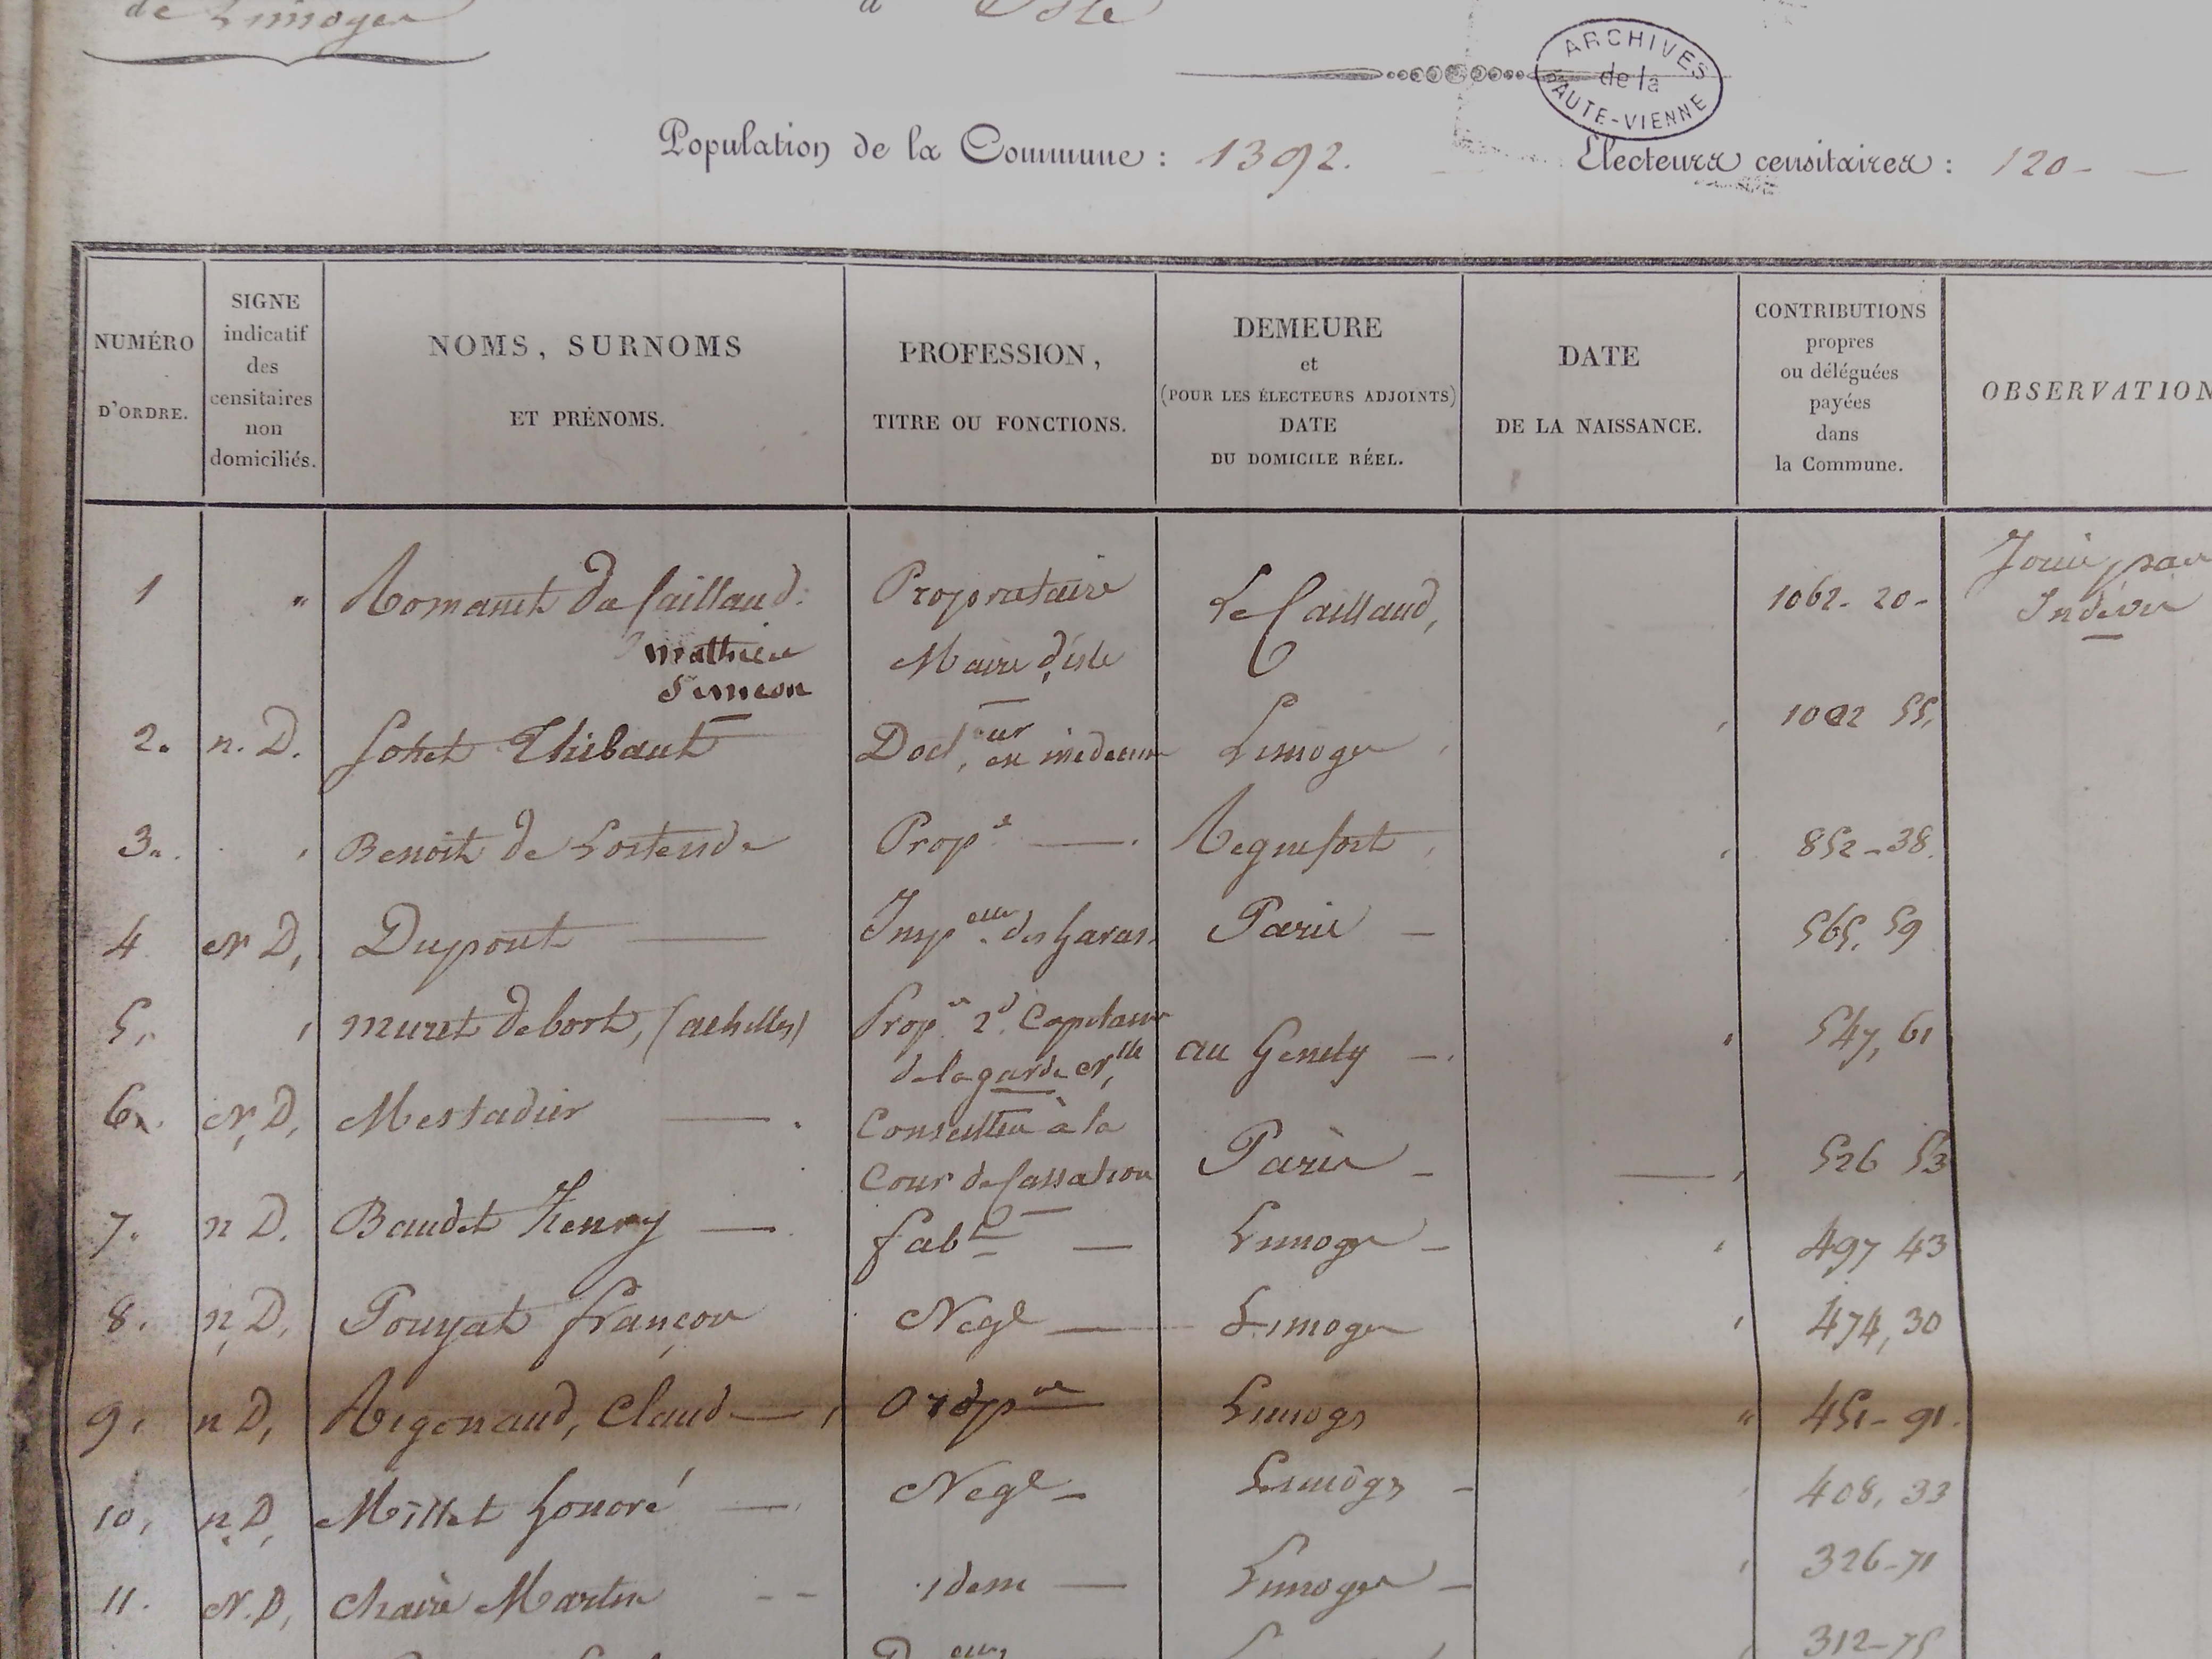 de Limoges
à Isle
ARCHIVES
de la
HAUTE-VIENNE
Population de la Commune : 1392.
Électeurs censitaires : 120 -
NUMÉRO
D'ORDRE.
SIGNE
indicatif
des
censitaires
non
domiciliés.
NOMS, SURNOMS
ET PRÉNOMS.
PROFESSION,
TITRE OU FONCTIONS.
DEMEURE
et
(POUR LES ÉLECTEURS ADJOINTS)
DATE
DU DOMICILE RÉEL.
DATE
DE LA NAISSANCE.
CONTRIBUTIONS
propres
ou déléguées
payées
dans
la Commune.
OBSERVATION
1 " Romanet du Caillaud. Propriétaire Le Caillaud, 1062- 20-
Mathieu Maire d'isle
Simeon
2. n. D. Thibaut Doct,eur en médecine Limoges 55,
3. Benoit de Lostende Propre Regnefort 852-38.
4 N D, Dupont des haras Paris - 565, 59
5, Muret debort, (achilles) Propre 2d. Capitaine au Genety - 547, 61
de la garde Nlle
6 N, D, Mestadier Conseiller à la Paris - 526 53
Cour de Cassation
7. n D. Baudet henry - fabt - Limoges - 497 43
8. n, D, Pouyat françois Negt - Limoges 474, 30
9, n D, Rigonaud, Claud - propre Limoges " 451- 91.
10, n. D, Millet honoré - Negt - Limoges - 408, 33
11. N. D, Martin idem - Limoges - 326-71
312-75